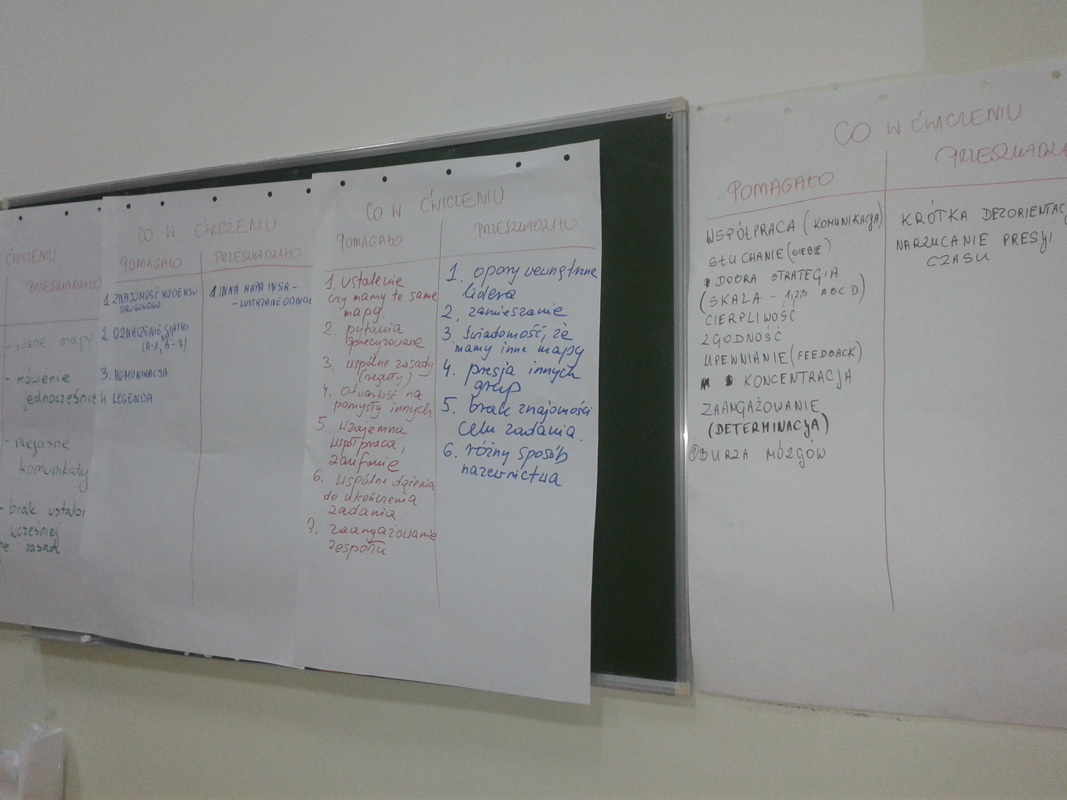 ĆWICZENIU
PRZESZKADZAŁO
- różne mapy
- mówienie
jednocześnie
- niejasne
komunikaty
- brak ustaleń
wcześniej
zasad
CO W ĆWICZENIU
POMAGAŁO
PRZESZKADZAŁO
1. ZNAJOMOŚĆ KODEKSU
DROGOWEGO
2. OZNACZENIE SIATKI
(A-1, B-3)
3. KOMUNIKACJA
4. LEGENDA
1. INNA MAPA
CO W ĆWICZENIU
POMAGAŁO
PRZESZKADZAŁO
1 ustalenie
czy mamy te same
mapy.
2. pytania
sprecyzowane
3. wspólne zasady
(reguły)
4. otwartość na
pomysły innych
5. wzajemna
współpraca,
zaufanie
6. wspólne dążenia
do ukończenia
zadania.
7. zaangażowanie
zespołu
1. opory wewnętrzne
lidera
2. zamieszanie
3. świadomość, że
mamy inne mapy
4. presja innych
grup
5. brak znajomości
celu zadania.
6. różny sposób
nazewnictwa
CO W ĆWICZENIU
POMAGAŁO
PRZESZKADZA
WSPÓŁPRACA (KOMUNIKACJA)
SŁUCHANIE (SIEBIE)
DOBRA STRATEGIA
(SKALA - 1,2,3 ABCD)
CIERPLIWOŚĆ
ZGODNOŚĆ
UPEWNIANIE (FEEDBACK)
KONCENTRACJA
ZAANGAŻOWANIE
(DETERMINACJA)
BURZA MÓZGÓW
KRÓTKA DEZORIENTAC
NARZUCANIE PRESJI
CZASU